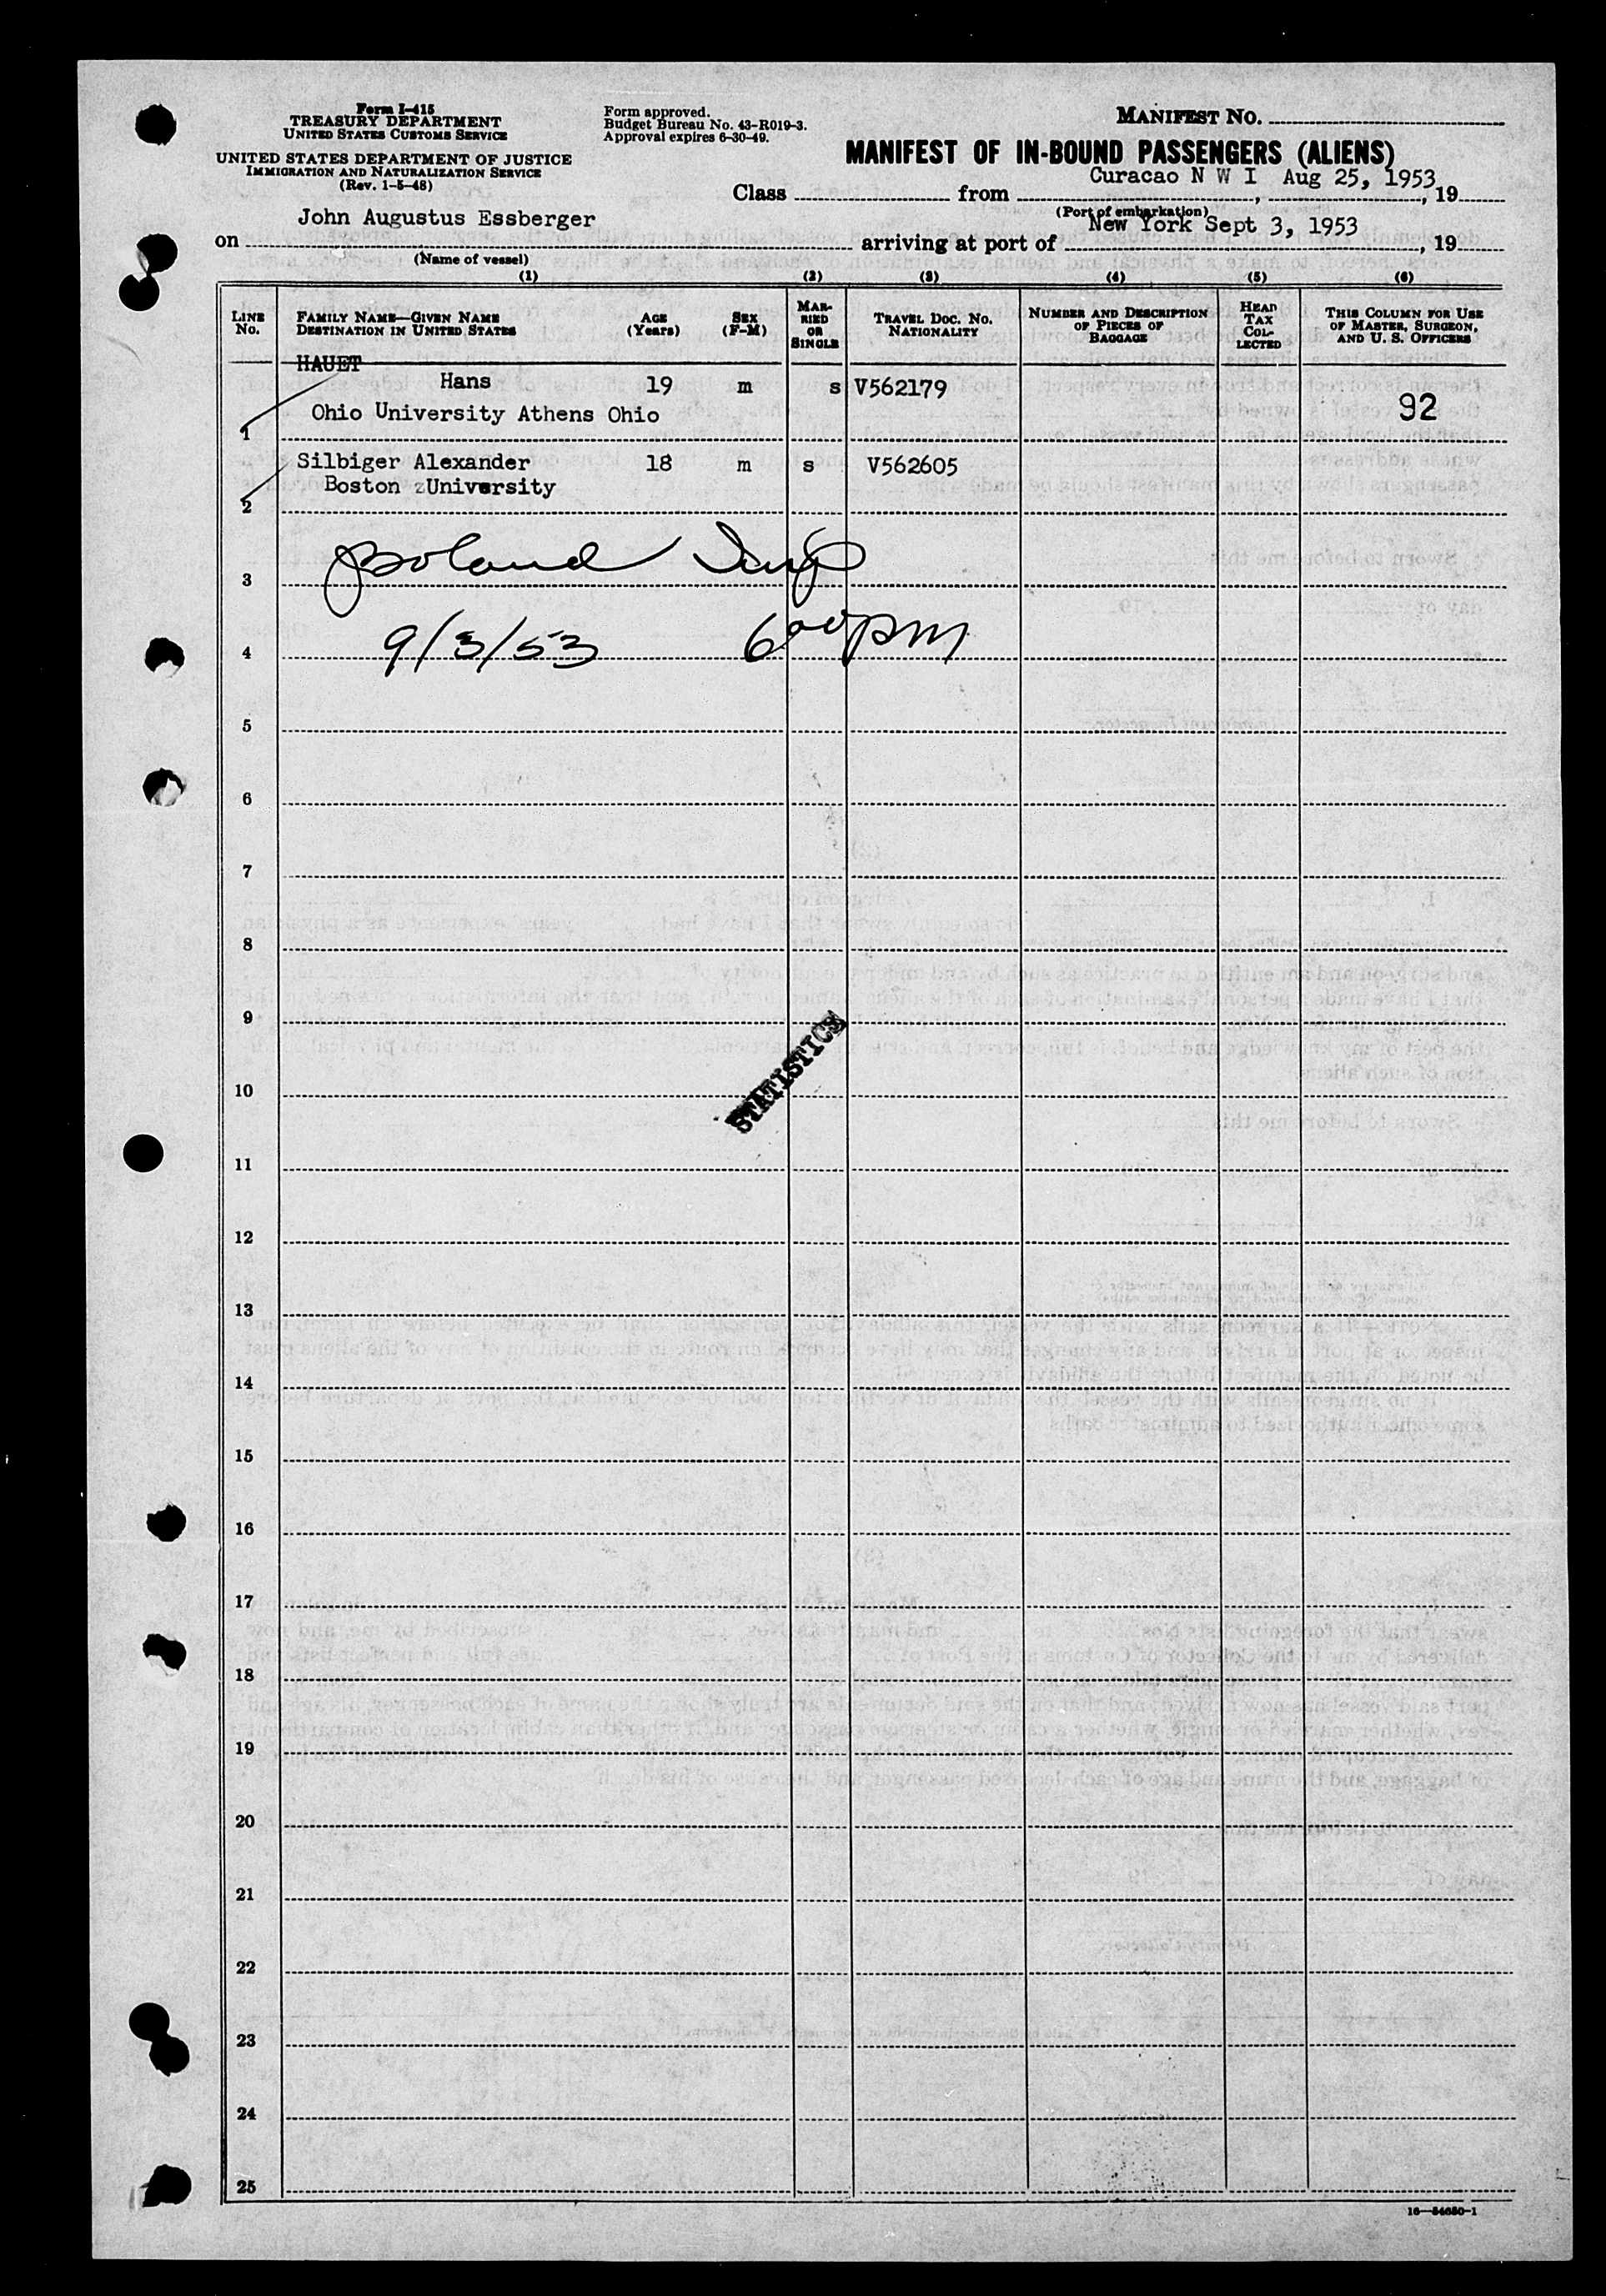 Form I-415
TREASURY DEPARTMENT
UNITED STATES CUSTOMS SERVICE
UNITED STATES DEPARTMENT OF JUSTICE
IMMIGRATION AND NATURALIZATION SERVICE
(Rev. 1-5-48)
Form approved.
Budget Bureau No. 43-R019-3.
Approval expires 6-30-49.
MANIFEST NO.
MANIFEST OF IN-BOUND PASSENGERS (ALIENS)
Class from Curacao N W I , Aug 25, 1953, 19
(Port of embarkation)
on John Augustus Essberger arriving at port of New York Sept 3, 1953, 19
(Name of vessel)
(1) (2) (3) (4) (5) (6)
LINE No. FAMILY NAME—GIVEN NAME DESTINATION IN UNITED STATES AGE (Years) SEX (F-M) MARRIED OR SINGLE TRAVEL DOC. NO. NATIONALITY NUMBER AND DESCRIPTION OF PIECES OF BAGGAGE HEAD TAX COLLECTED THIS COLUMN FOR USE OF MASTER, SURGEON, AND U. S. OFFICERS
HAUET
Hans 19 m s V562179
1 Ohio University Athens Ohio 92
Silbiger Alexander 18 m s V562605
2 Boston zUniversity
3
4 9/3/53 6 00 pm
5
6
7
8
9
STATISTICS
10
11
12
13
14
15
16
17
18
19
20
21
22
23
24
25
16—54650-1